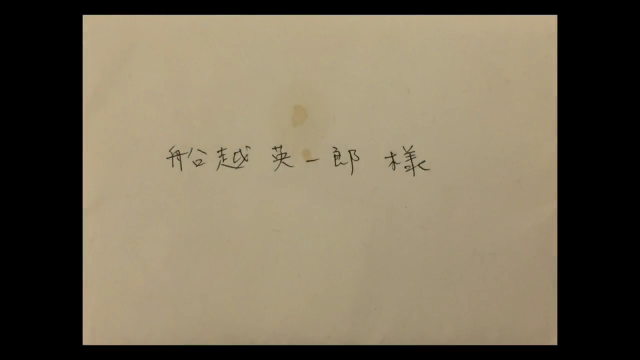 船越英一郎 様